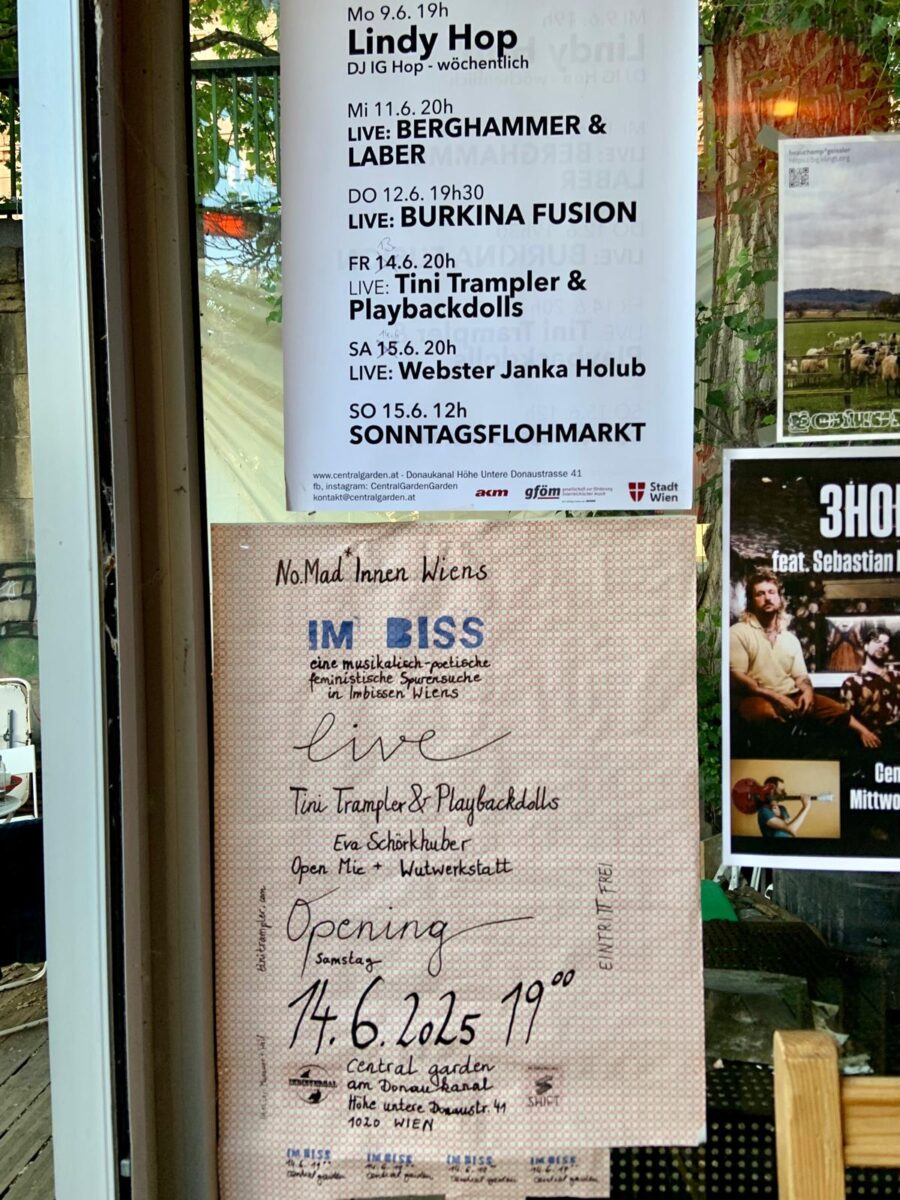 Mo 9.6. 19h
Lindy Hop
DJ IG Hop - wöchentlich
Mi 11.6. 20h
LIVE: BERGHAMMER &
LABER
DO 12.6. 19h30
LIVE: BURKINA FUSION
13.
FR 14.6. 20h
LIVE: Tini Trampler &
Playbackdolls
SA 15.6. 20h
LIVE: Webster Janka Holub
SO 15.6. 12h
SONNTAGSFLOHMARKT
www.centralgarden.at - Donaukanal Höhe Untere Donaustrasse 41
fb, instagram: CentralGardenGarden
kontakt@centralgarden.at
akm
gföm
Stadt
Wien
No.Mad*Innen Wiens
IM BISS
eine musikalisch-poetische
feministische Spurensuche
in Imbissen Wiens
live
Tini Trampler & Playbackdolls
Eva Schörkhuber
Open Mic + Wutwerkstatt
EINTRITT FREI
tinitrampler.com
Opening
Samstag
14.6.2025 19°°
Central garden
am Donaukanal
Höhe untere Donaustr. 41
1020 WIEN
SHIFT
IM BISS IM BISS IM BISS IM BISS
14.6. 19°° 14.6. 19°° 14.6. 19°° 14.6. 19°°
Central garden Central garden Central garden Central garden
3HO
feat. Sebastian
Cen
Mittwo